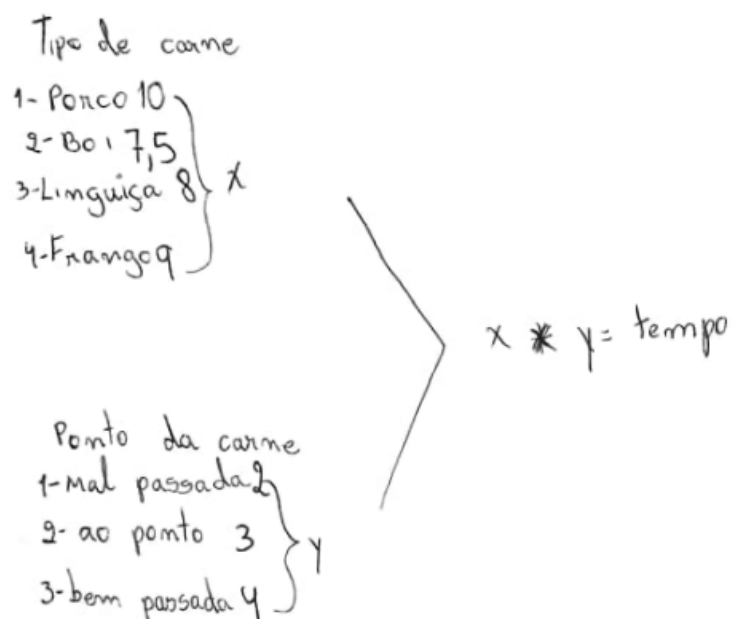 Tipo de carne
1- Porco 10
2- Boi 7,5
3- Linguiça 8
4- Frango 9
x
x * y = tempo
Ponto da carne
1- mal passada 2
2- ao ponto 3
3- bem passada 4
y